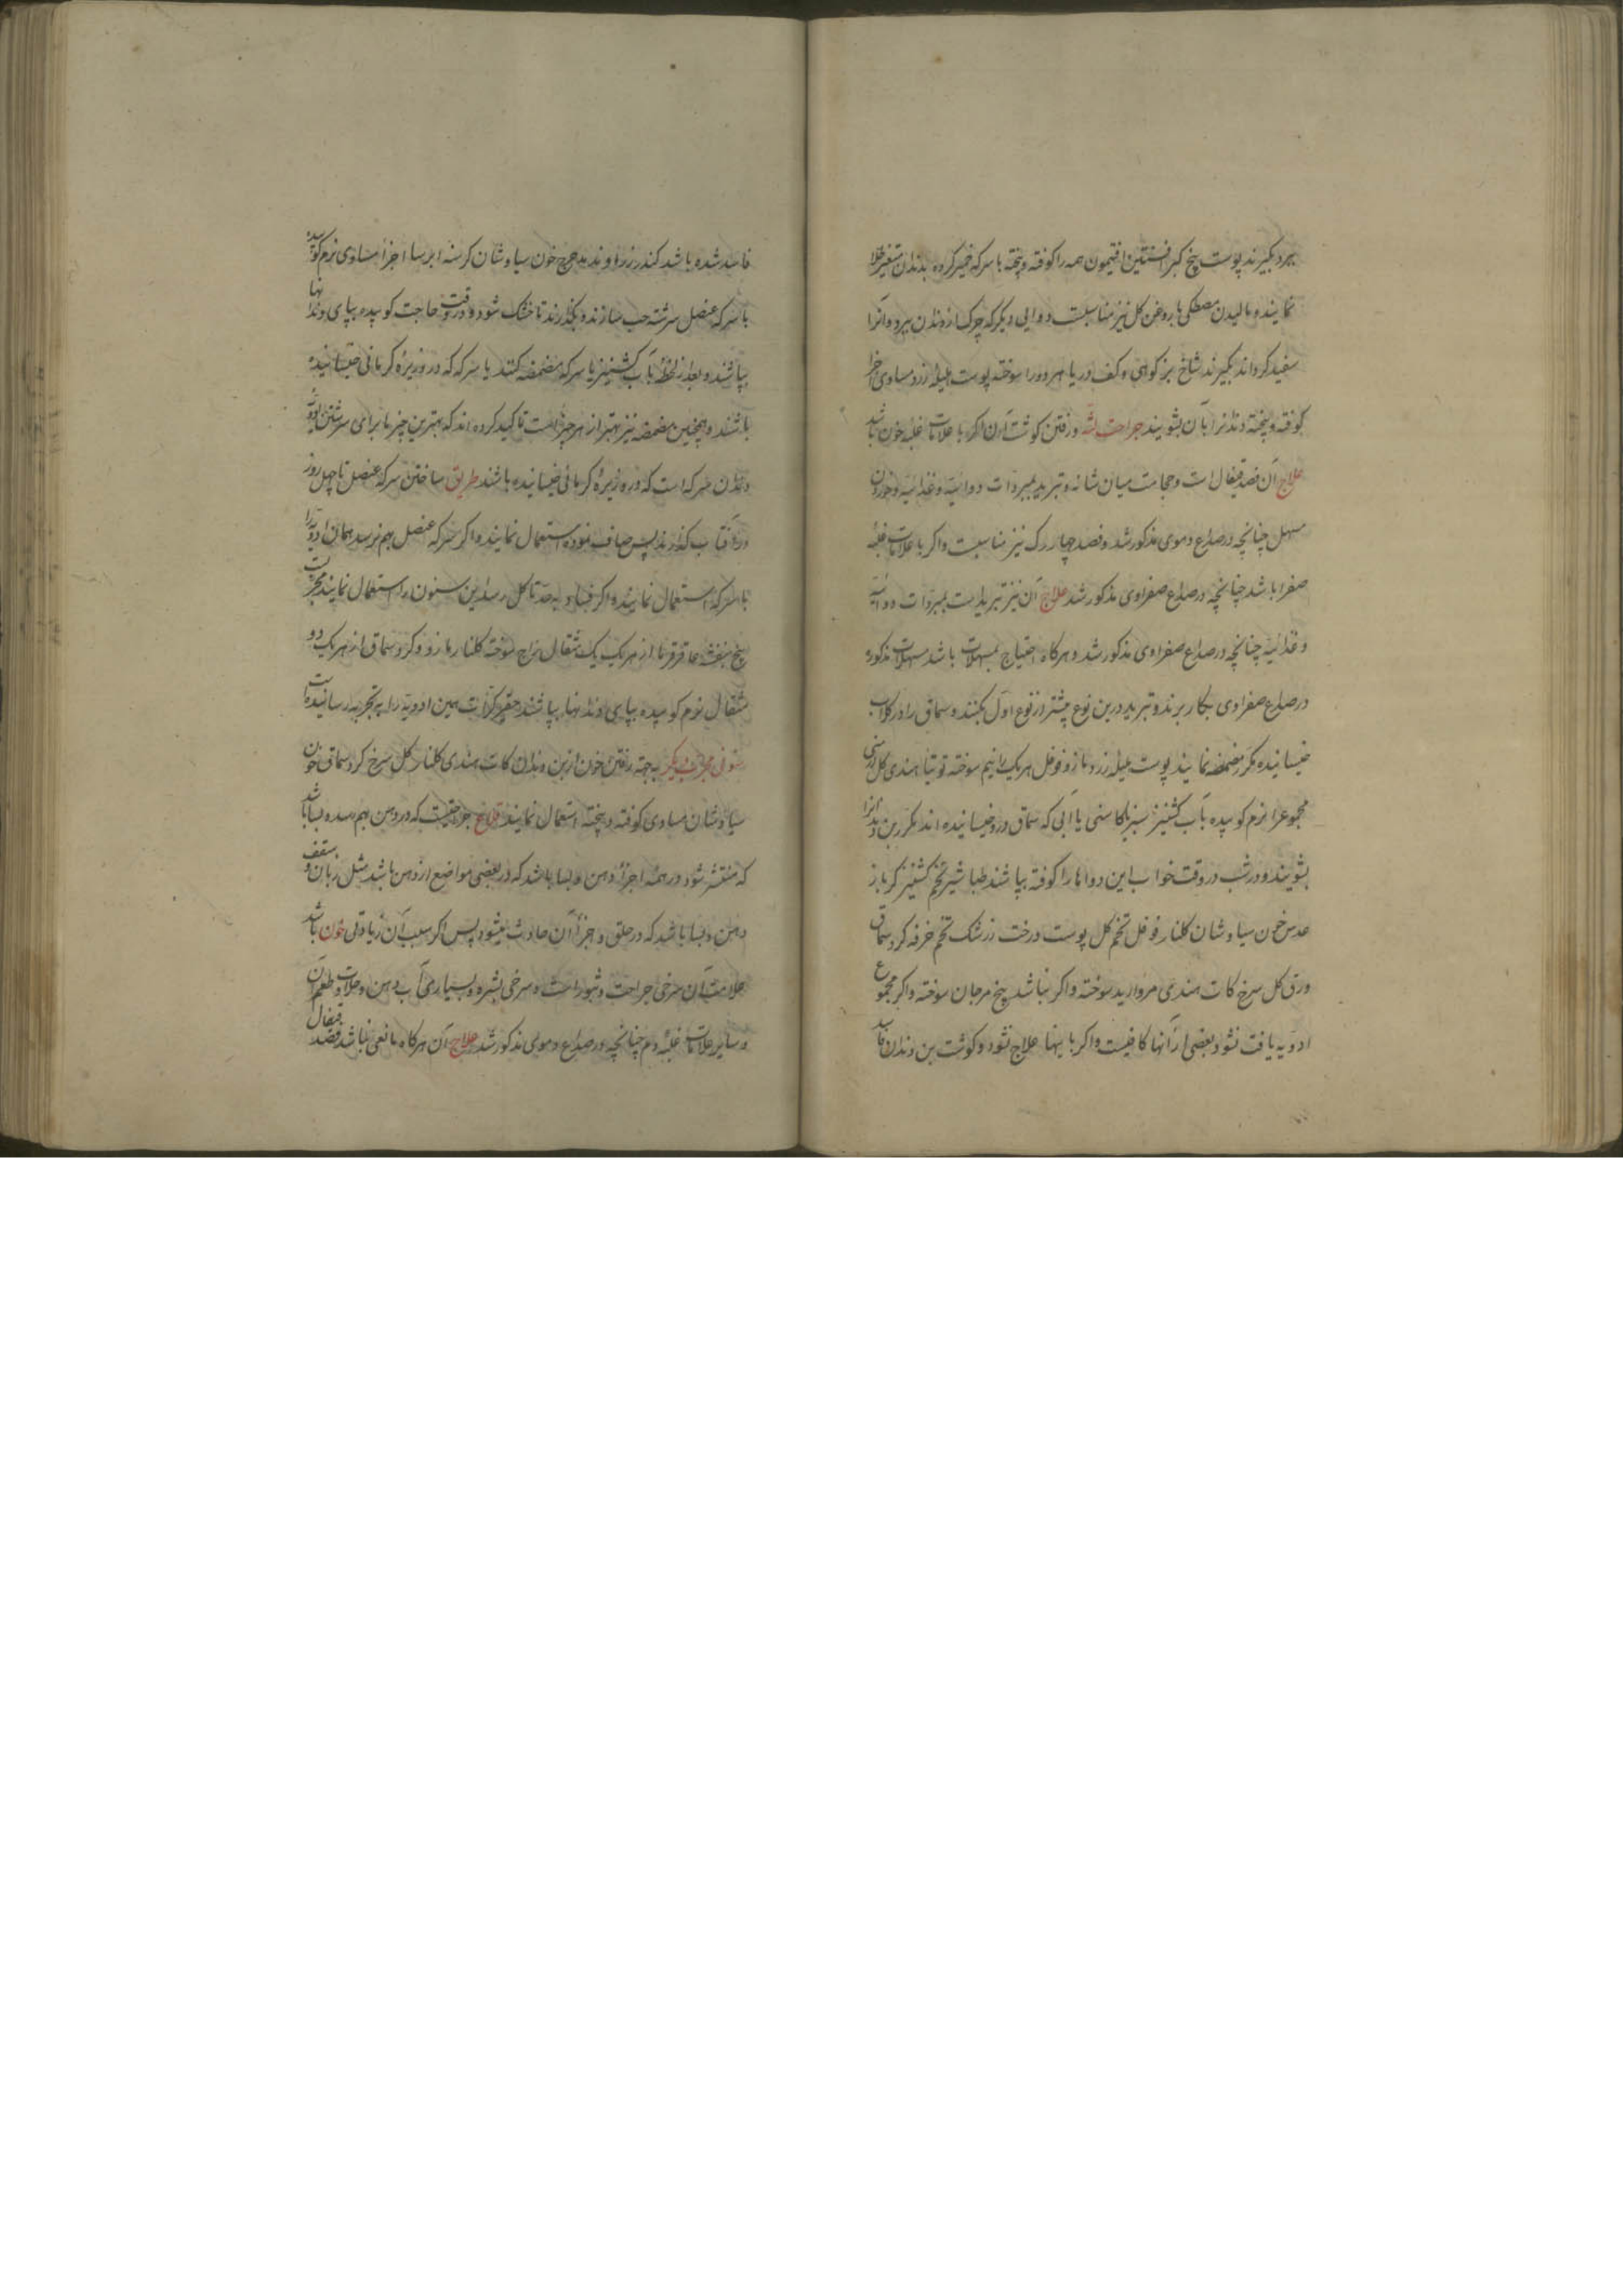 ببرد بگیرند پوست بیخ کبر افسنتین افتیمون همه را کوفته و بیخته با سرکه خمیر کرده بدندان متغیر طلا
نمایند و مالیدن مصطکی با روغن کل نیز مناسبست دوایی دیگر که چرک از دندان ببرد و آنرا
سفید کرداند بگیرند شاخ بز کوهی و کف دریا هر دو را سوخته پوست هلیله زرد مساوی اجزا
کوفته و بیخته دندانرا بآن بشویند جراحت لثه و رفتن کوشت آن اکر با علامات غلبه خون باشد
علاج آن فصد قیفال است و حجامت میان شانه و تبرید بمبردات دوائیه و غذائیه و خوردن
مسهل چنانچه در صداع دموی مذکور شد و فصد چهار رک نیز مناسبست و اکر با علامات غلبه
صفرا باشد چنانچه در صداع صفراوی مذکور شد علاج آن نیز تبریدست بمبردات دوائیه
و غذائیه چنانچه در صداع صفراوی مذکور شد و هرکاه احتیاج بمسهلات باشد مسهلات مذکوره
در صداع صفراوی بکار برند و تبرید درین نوع بیشتر از نوع اول بکنند و سماق را در کلاب
خیسانیده مکرر مضمضه نمایند پوست هلیله زرد مازو فوفل هر یک را نیم سوخته توتیا هندی کل ارمنی
مجموع را نرم کوبیده بآب کشنیز سبز یا کاسنی یا آبی که سماق درو خیسانیده اند مکرر بن دندانرا
بشویند و در شب در وقت خواب این دواها را کوفته بپاشند طباشیر تخم کشنیز کزمازز
عدس خون سیاوشان کلنار فوفل تخم کل پوست درخت زرشک تخم خرفه کرد سماق
ورق کل سرخ کات هندی مروارید سوخته و اکر نباشد بیخ مرجان سوخته و اکر مجموع
ادویه یافت نشود بعضی از آنها کافیست و اکر باینها علاج نشود و کوشت بن دندان فاسد
فاسد شده باشد کندر زراوند مدحرج خون سیاوشان کرسنه ایرسا اجزا مساوی نرم کوبیده
با سرکه عنصل سرشته حب سازند و بگذارند تا خشک شود و در وقت حاجت کوبیده بپای دندانها
بپاشند و بعد از لحظه بآب کشنیز یا سرکه مضمضه کنند یا سرکه که درو زیره کرمانی خیسانیده
باشند و همچنین مضمضه نیز بهتر از هر چیز است تاکید کرده اند که بهترین چیزها برای سرشتن ادویه
دندان سرکه است که درو زیره کرمانی خیسانیده باشند طریق ساختن سرکه عنصل تا چهل روز
در آفتاب کذارند پس صاف نموده استعمال نمایند و اکر سرکه عنصل بهم نرسد همان ادویه را
با سرکه استعمال نمایند و اکر فساد به حد تاکل رسد این سنون را استعمال نمایند مجربست
بیخ بنفشه عاقرقرحا از هر یک یک مثقال زاج سوخته کلنار مازو و کرد سماق از هر یک دو
مثقال نرم کوبیده بپای دندانها بپاشند حقیر کرات همین ادویه را به تجربه رسانیده است
سنونی مجرب دیکر به جهة رفتن خون از بن دندان کات هندی کلنار کل سرخ کرد سماق خون
سیاوشان مساوی کوفته و بیخته استعمال نمایند قلاع جراحتیست که در دهن بهم رسد و بسا باشد
که منتشر شود در همه اجزاء دهن و بسا باشد که در بعضی مواضع از دهن باشد مثل زبان و سقف
دهن و بسا باشد که در حلق و اجزاء آن حادث میشود پس اکر سبب آن زیادتی خون باشد
علامت آن سرخی جراحت و بثوراست و سرخی بشره و بسیاری آب دهن و حلاوت طعم آن
و سایر علامات غلبه دم چنانچه در صداع دموی مذکور شد علاج آن هرکاه مانعی نباشد فصد قیفال